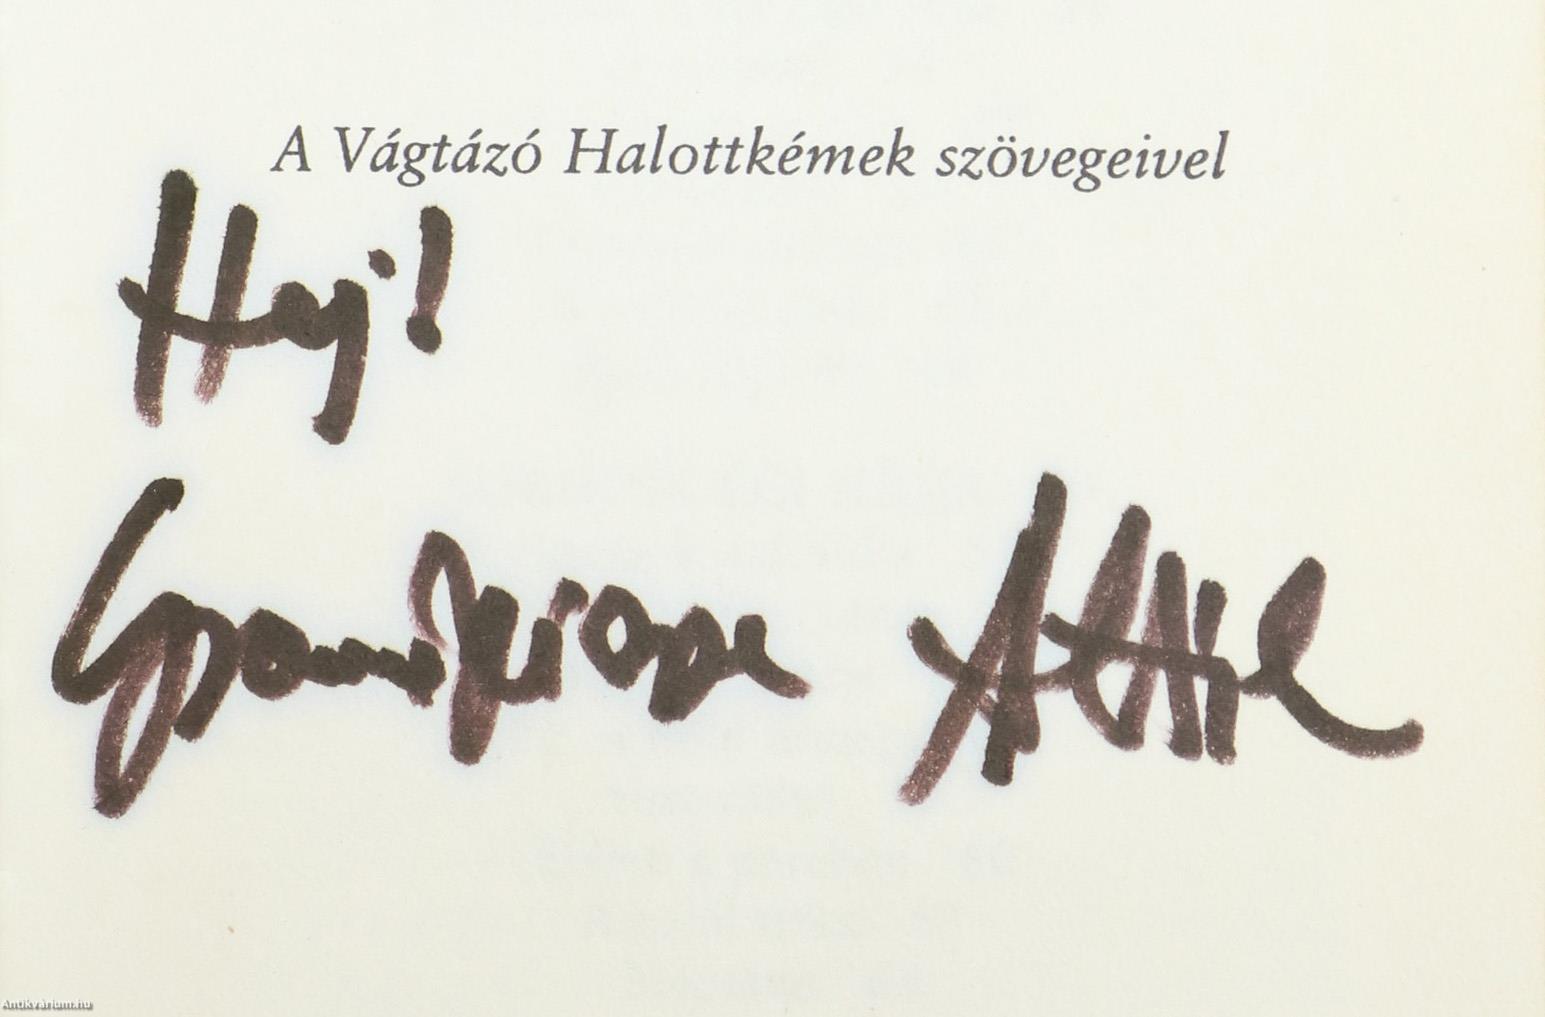 A Vágtázó Halottkémek szövegeivel
Hej!
Grandpierre Attila
Antikvárium.hu